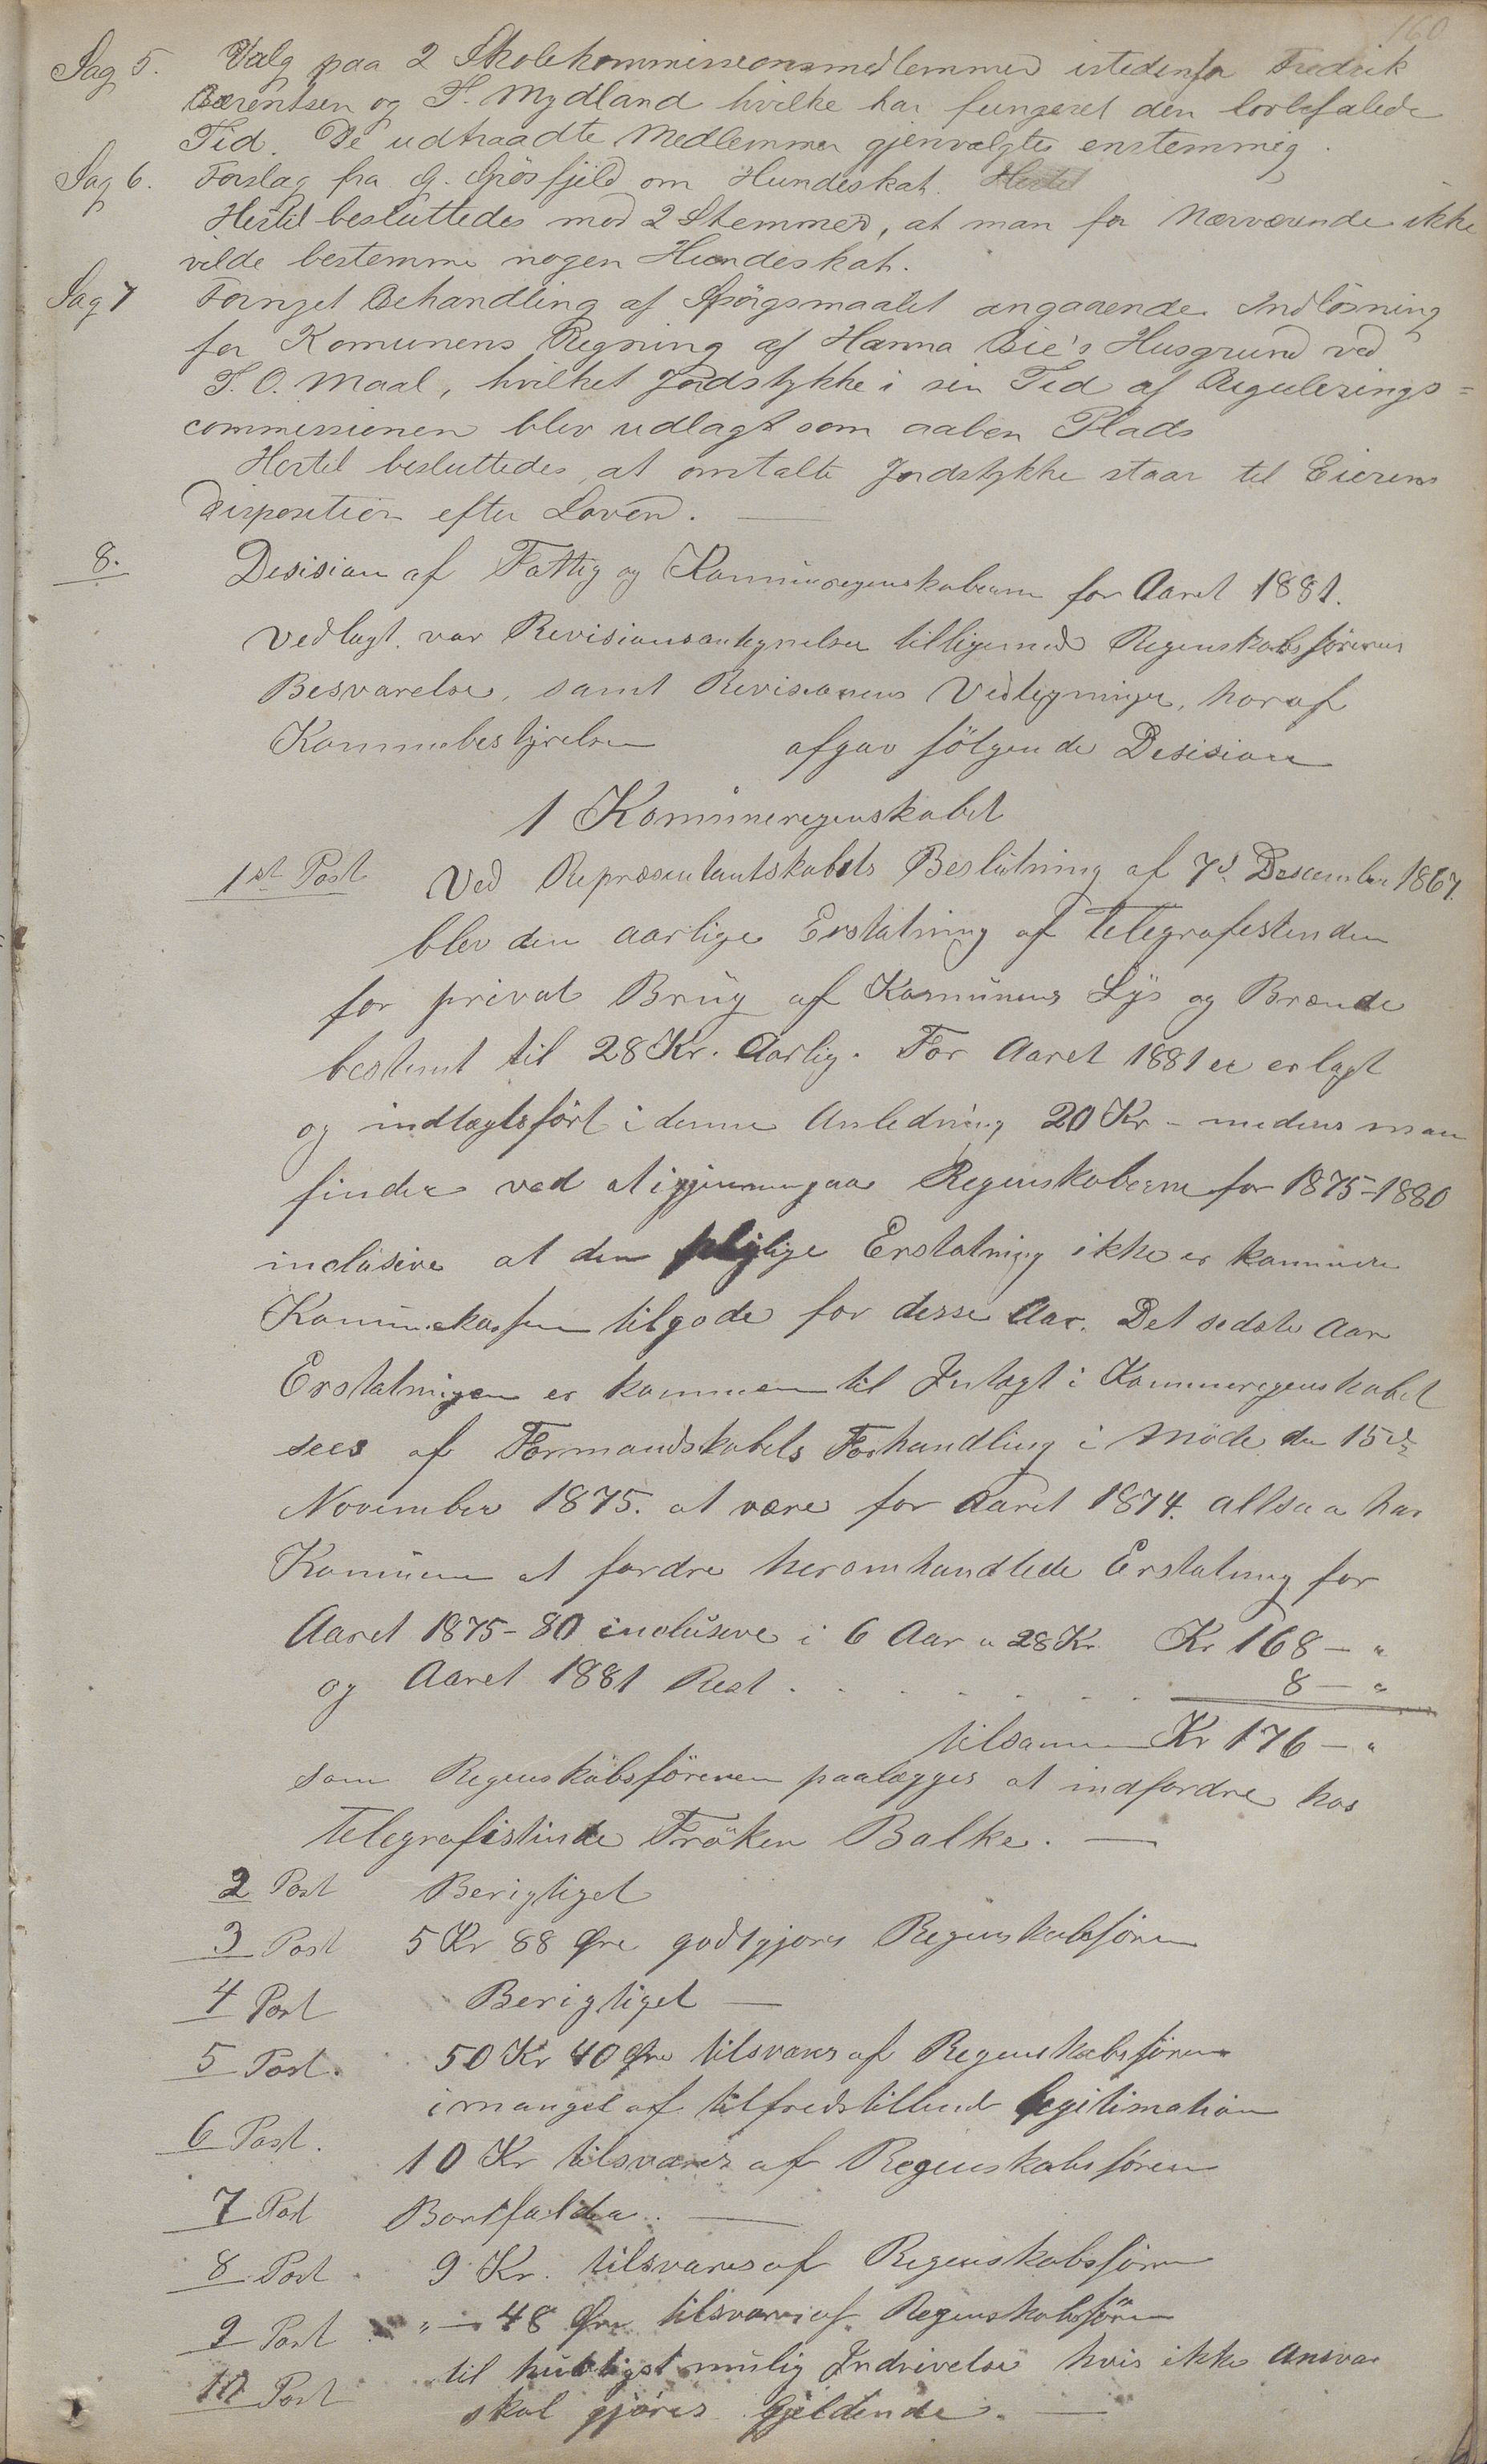 160
Sag 5. Valg paa 2 Skolekommissionsmedlemmer istedenfor Fredrik
Berentsen og T. Mydland hvilke har fungeret den lovbefalede
Tid. De udtraadte Medlemmer gjenvalgtes enstemmig.
Sag 6. Forslag fra G. Spösfjeld om Hundeskat.
Hertil besluttedes mod 2 Stemmer, at man for Nærværende ikke
vilde bestemme nogen Hundeskat.
Sag 7 Fornyet Behandling af Spörgsmaalet angaaende Indlösning
for Komunens Regning af Hanna Bie's Husgrund ved
T. O. Maal, hvilket Jordstykke i sin Tid af Regulerings=
commissionen blev udlagt som aaben Plads
Hertil besluttedes, at omtalte Jordstykke staar til Eierens
Disposition efter Loven. —
8. Desision af Fattig og Komuneregenskaberne for Aaret 1881.
Vedlagt var Revisionsantegnelser tilligemed Regenskabsförerens
Besvarelse, samt Revisionens Vedtegninger, hvoraf
Kommubestyrelsen afgav fölgende Desision
1 Komuneregenskabet
1st Post Ved Repræsentantskabets Beslutning af 7d Descember 1867.
blev den aarlige Erstatning af Telegrafestinden
for privat Brug af Komunens Lys og Brænde
bestemt til 28 Kr. Aarlig. For Aaret 1881 er erlagt
og indtægtsfört i denne Anledning 20 Kr - medens man
finder ved at igjennemgaa Regenskaberne for 1875-1880
inclusive at den pligtige Erstatning ikke er kommen
Komunekassen tilgode for disse Aar. Det sidste Aar
Erstatningen er kommen til Intægt i Kommuneregenskabet
sees af Formandskabets Forhandling i Möde den 15de
November 1875. at være for Aaret 1874. altsaa har
Komunen at fordre heromhandlede Erstatning for
Aaret 1875-80 inclusive i 6 Aar a 28 Kr. Kr 168 — "
og Aaret 1881 Rest . . . . . . . 8 — "
tilsammen Kr 176 — "
som Regenskabsföreren paalægges at indfordre hos
Telegrafistinde Fröken Balke. —
2 Post Berigtiget
3 Post 5 Kr 88 Øre godtgjöres Regenskabsföreren
4 Post Berigtiget —
5 Post. 50 Kr 40 Øre tilsvares af Regenskabsföreren
i mangel af tilfredstillende legitimation
6 Post. 10 Kr tilsvares af Regenskabsföreren
7 Post Bortfalder. —
8 Post 9 Kr. tilsvares af Regenskabsföreren
9 Post " — 48 Øre tilsvares af Regenskabsföreren
10 Post til hurtigst mulig Indrivelse hvis ikke Ansvar
skal gjöres gjeldende. —